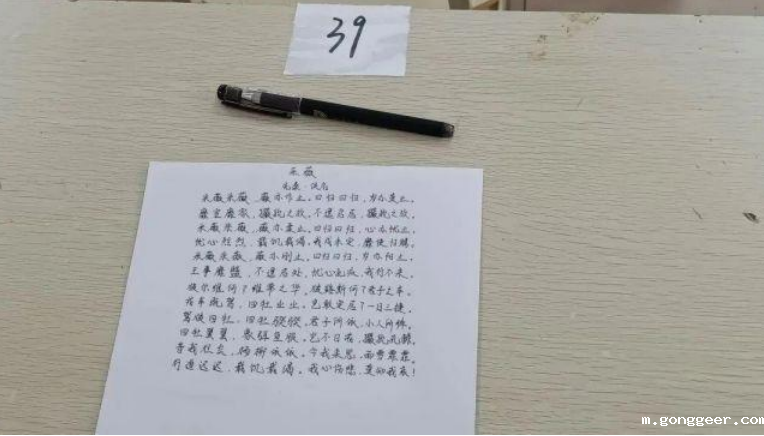 39
采薇
先秦·佚名
采薇采薇,薇亦作止。曰归曰归,岁亦莫止。
靡室靡家,猃狁之故。不遑启居,猃狁之故。
采薇采薇,薇亦柔止。曰归曰归,心亦忧止。
忧心烈烈,载饥载渴。我戍未定,靡使归聘。
采薇采薇,薇亦刚止。曰归曰归,岁亦阳止。
王事靡盬,不遑启处。忧心孔疚,我行不来。
彼尔维何?维常之华。彼路斯何?君子之车。
戎车既驾,四牡业业。岂敢定居?一日三捷。
驾彼四牡,四牡骙骙。君子所依,小人所腓。
四牡翼翼,象弭鱼服。岂不日戒,猃狁孔棘。
昔我往矣,杨柳依依。今我来思,雨雪霏霏。
行道迟迟,载饥载渴。我心伤悲,莫知我哀!
m.gonggeer.com